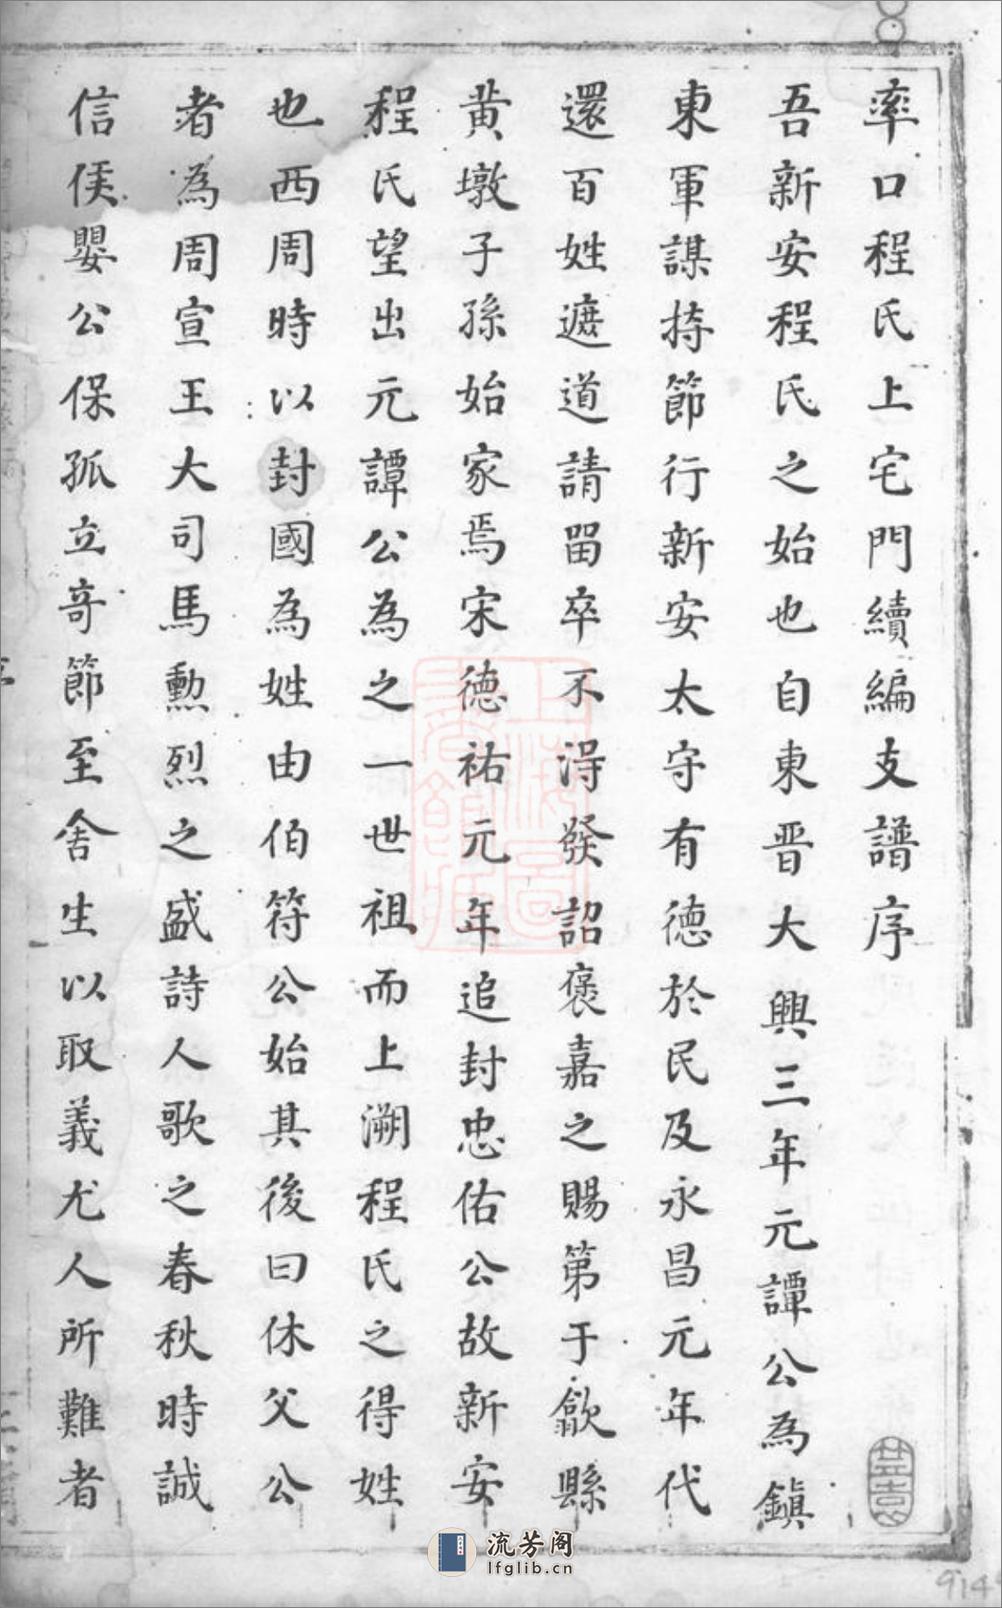 率口程氏上宅門續編支譜序
吾新安程氏之始也自東晋大興三年元譚公為鎮
東軍謀持節行新安太守有德於民及永昌元年代
還百姓遮道請畱卒不得發詔褒嘉之賜第于歙縣
黄墩子孫始家焉宋德祐元年追封忠佑公故新安
程氏望出元譚公為之一世祖而上溯程氏之得姓
也西周時以封國為姓由伯符公始其後曰休父公
者為周宣王大司馬勲烈之盛詩人歌之春秋時誠
信侯嬰公保孤立竒節至舍生以取義尤人所難者
上海圖書館藏
流芳阁
lfglib.cn
914